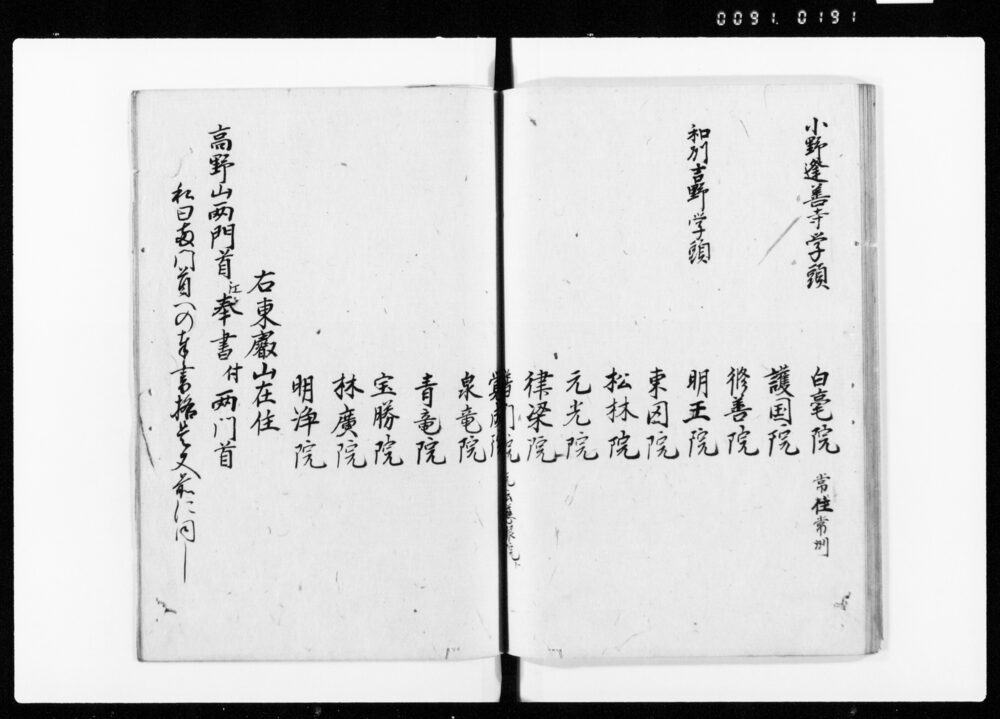 0091 0191
小野逢善寺学頭
白毫院 常住常州
護国院
修善院
和州吉野学頭
明王院
東因院
松林院
元光院
律梁院
泉竜院
青竜院
宝勝院
林廣院
明浄院
右東叡山在住
高野山両門首江奉書付両門首
私曰両門首への奉書格